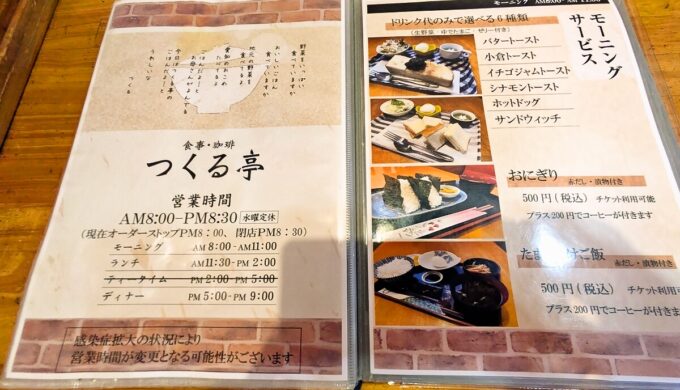 野菜をいっぱい
食べていますか
おいしいごはん
食べていますか
地元の野菜を
食べてるよ
愛知のおこめ
たべてるよ
ごはんだよ〜
お母さんがよんでる
今日はつくる亭の
ごはんだって
うれしいな
つくる
食事・珈琲
つくる亭
営業時間
AM8:00-PM8:30 水曜定休
(現在オーダーストップPM8:00、閉店PM8:30)
モーニング AM 8:00-AM11:00
ランチ AM11:30-PM 2:00
ティータイム PM 2:00-PM 5:00
ディナー PM 5:00-PM 9:00
感染症拡大の状況により
営業時間が変更となる可能性がございます
モーニング AM8:00-AM 11:00
モーニング
サービス
ドリンク代のみで選べる6種類
(生野菜 ゆでたまご ゼリー付き)
バタートースト
小倉トースト
イチゴジャムトースト
シナモントースト
ホットドッグ
サンドウィッチ
おにぎり 赤だし・漬物付き
500円(税込) チケット利用可能
プラス200円でコーヒーが付きます
たま け ご飯 赤だし・漬物付き
500円(税込) チケット利用
プラス200円でコーヒーが付きま